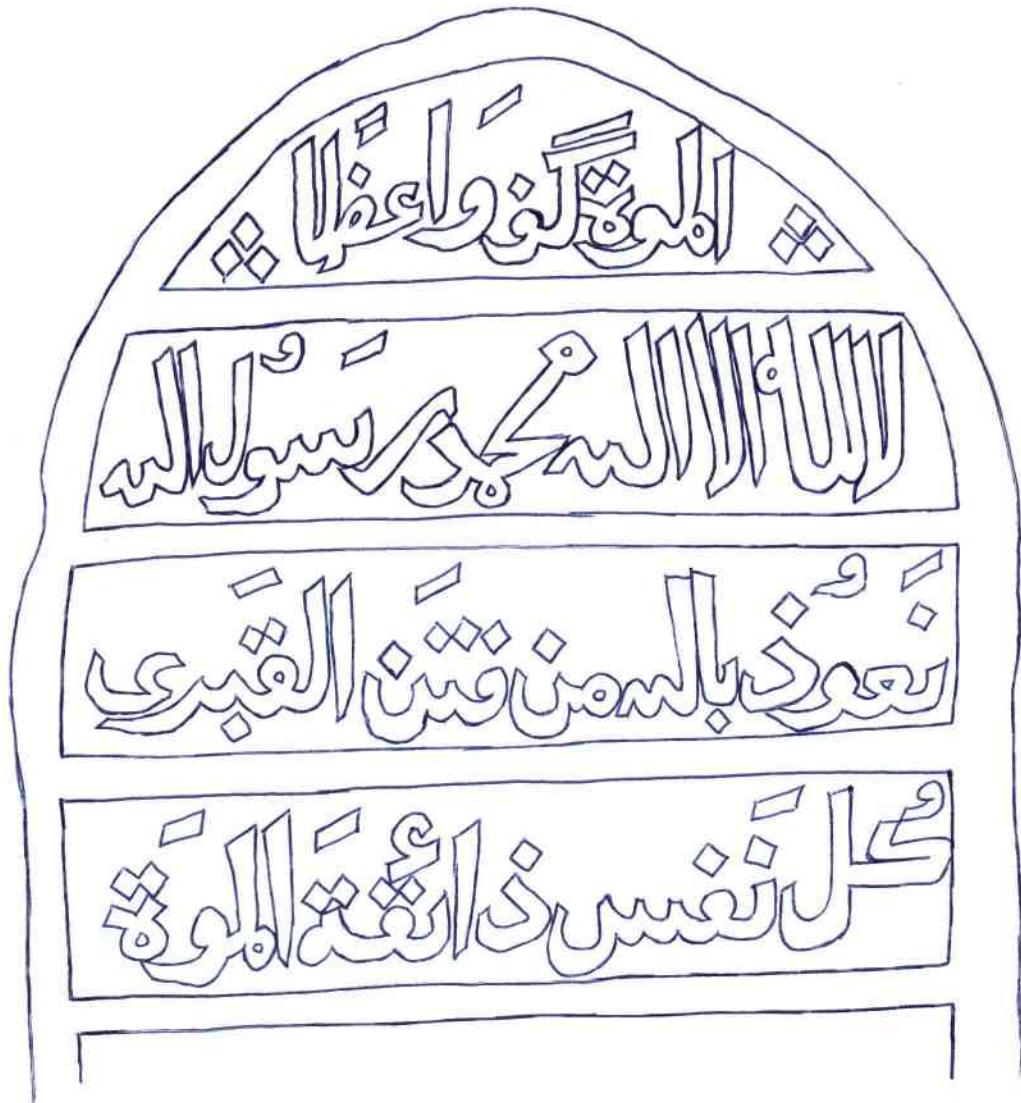 الموة گفو وَاعظَا
لا اله الا الله محمد رسَوُل الله
نَعُوذ بالله من فتَن القَبرى
كُل نَفس ذائقَة الموَة